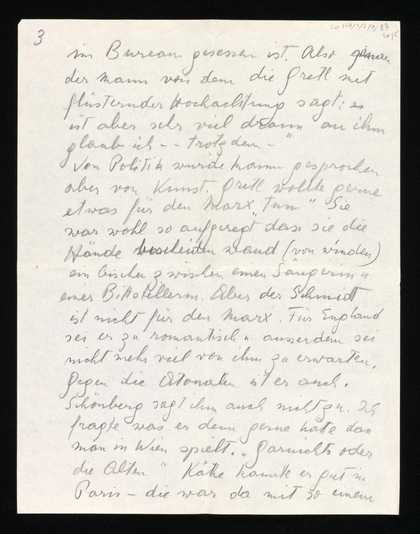 3
im Bureau gesessen ist. Also genau
der Mann von dem die Gretl mit
flüsternder Hochachtung sagt: es
ist aber sehr viel dran an ihm
glaub ich -- trotzdem -"
Von Politik wurde kaum gesprochen
aber von Kunst. Gretl wollte gerne
etwas für den Marx "tun" Sie
war wohl so aufgeregt dass sie die
Hände wand (von winden)
ein bischen zwischen einer Sängerin u
einer Bittstellerin. Aber der Schmidt
ist nicht für den Marx. Für England
sei er zu romantisch u ausserdem sei
nicht mehr viel von ihm zu erwarten.
Gegen die Atonalen ist er auch.
Schönberg sagt ihm auch nicht zu. Ich
fragte was er denn gerne hätte das
man in Wien spielt. "Garnichts oder
die Alten" Käthe kannte er gut in
Paris – die war da mit so einem